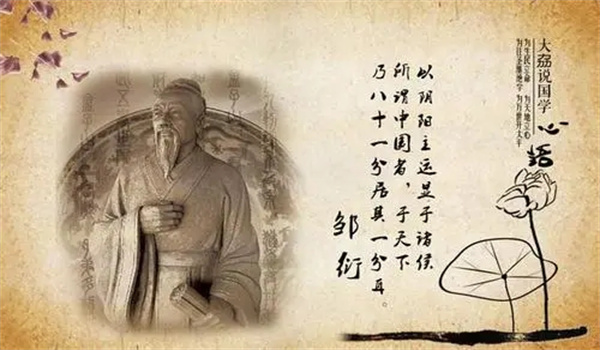 大荔说国学
为生民立命 为天地立心
为往圣继绝学 为万世开太平
心语
以阴阳主运显于诸侯
所谓中国者，于天下
乃八十一分居其一分耳。
邹衍